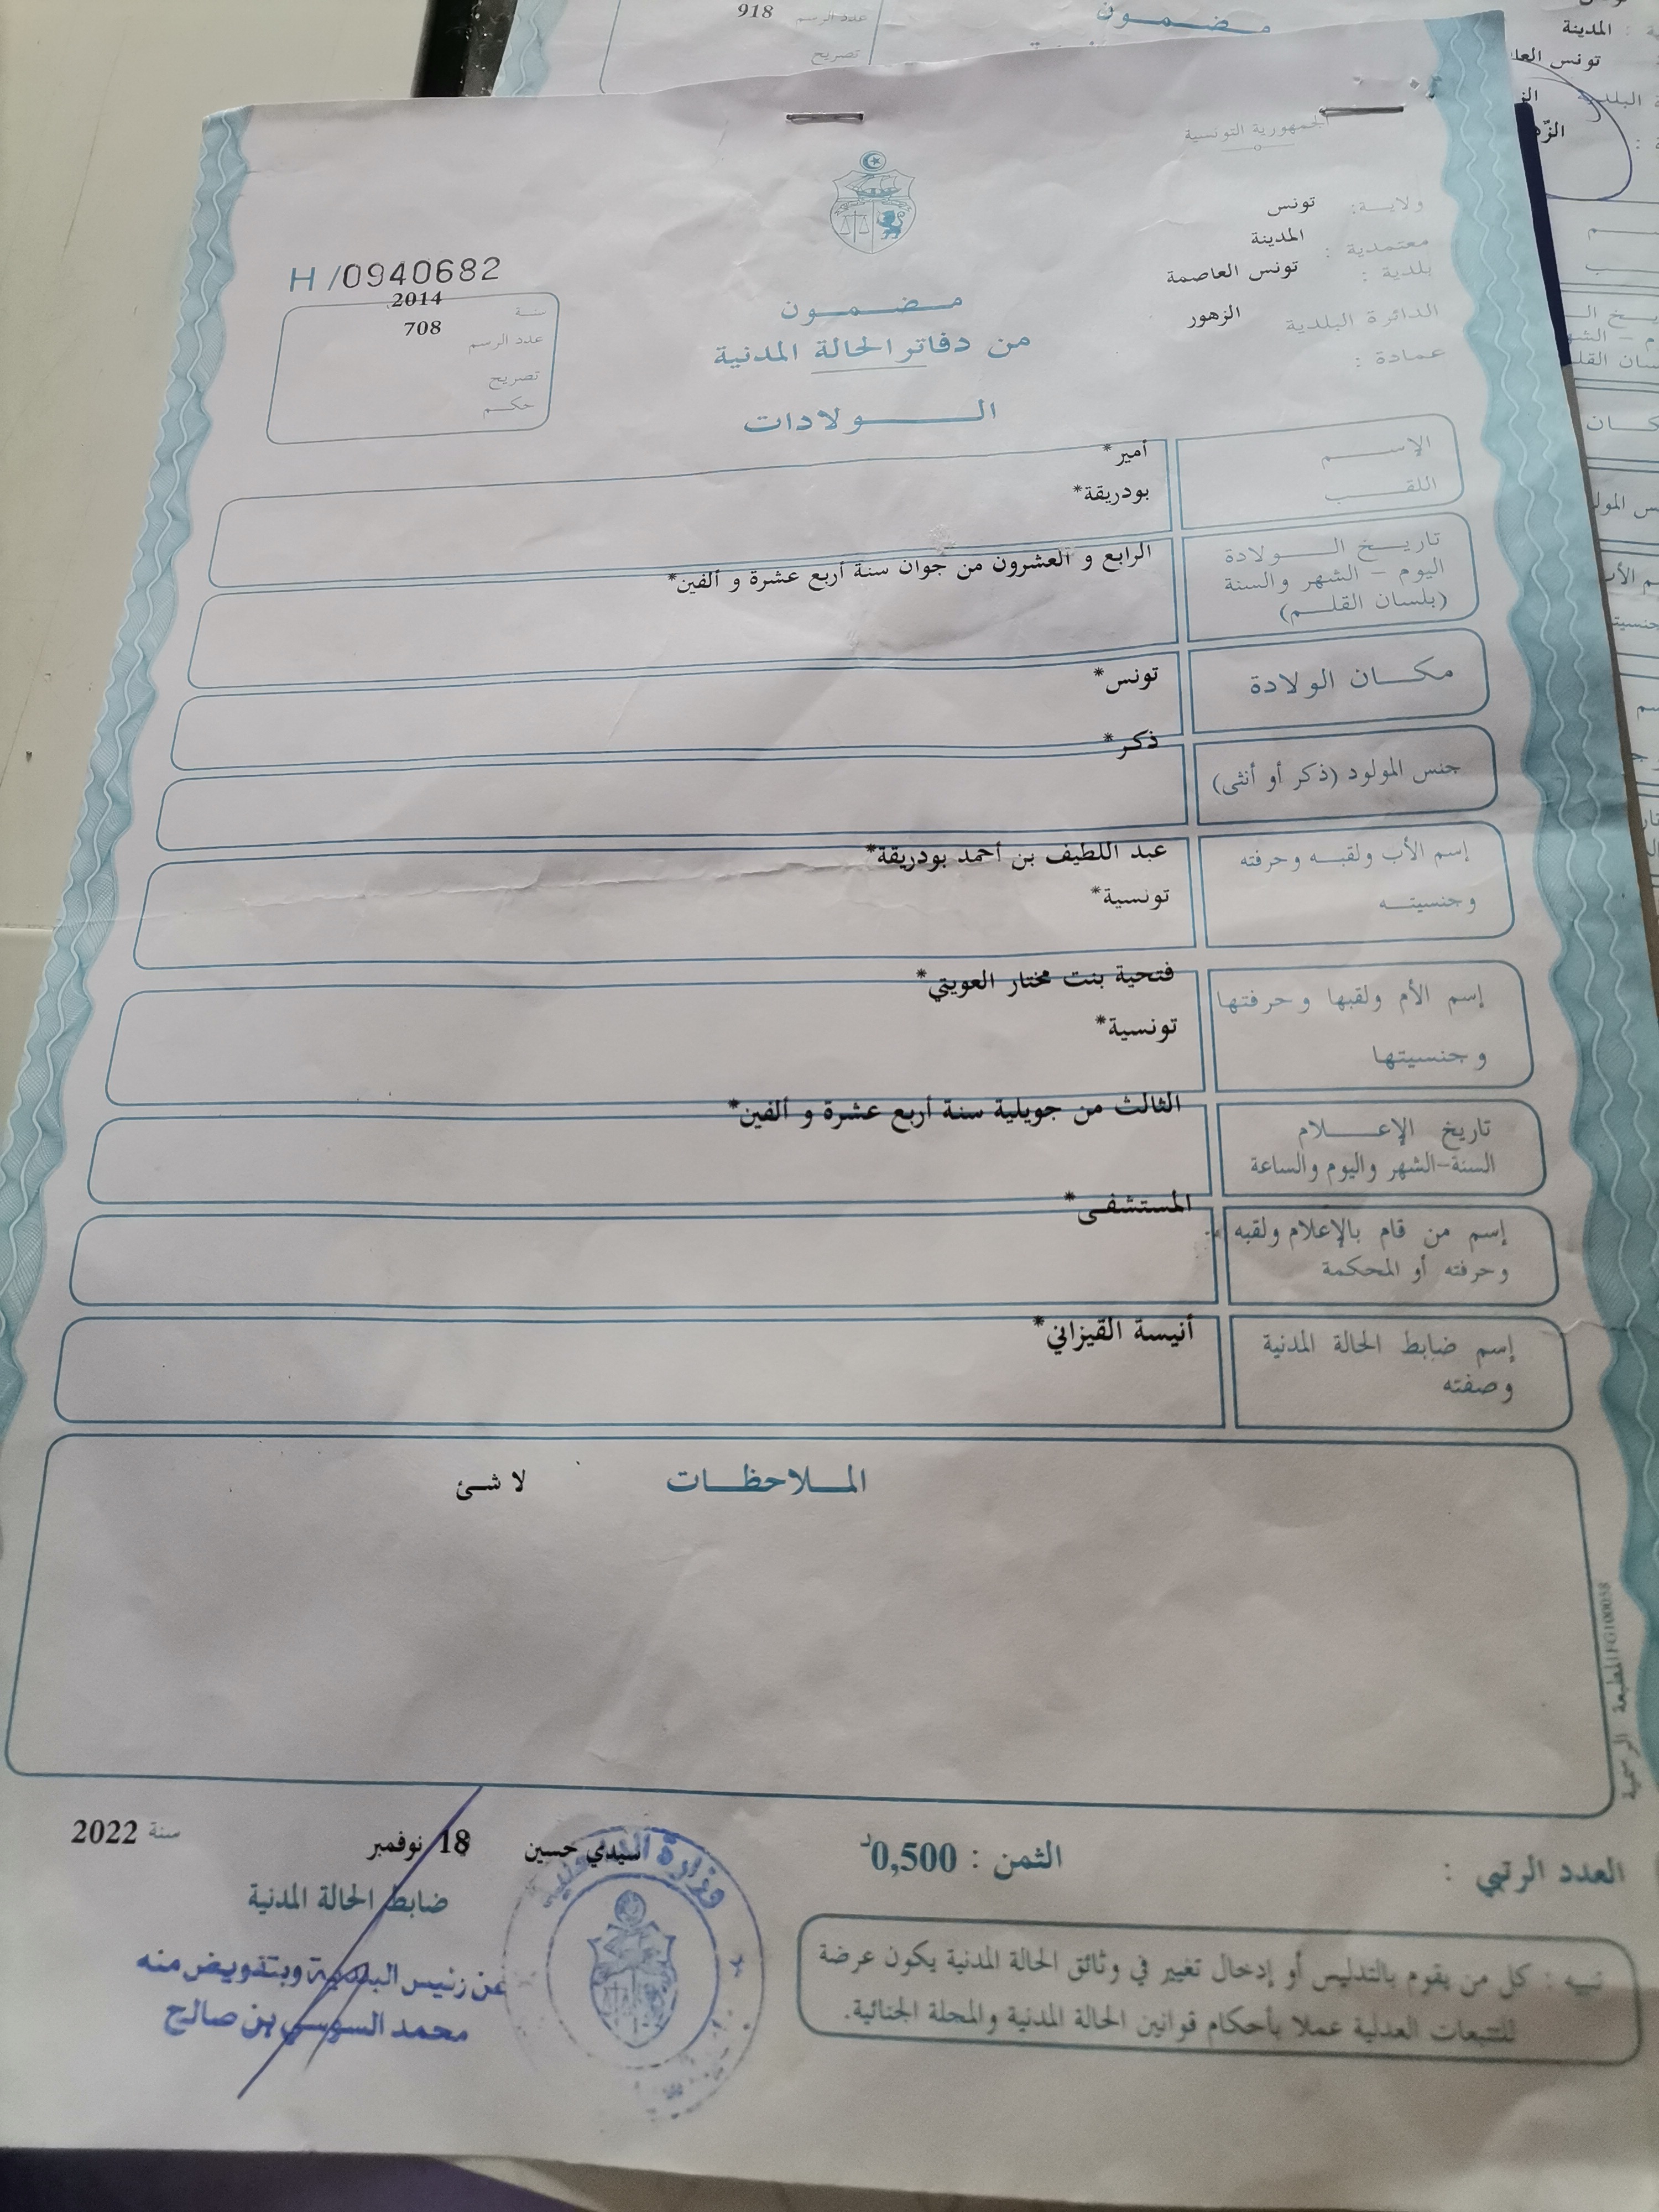 918
عدد الرسم
مضمون
تصريح
المدينة
الجمهورية التونسية
ولاية: تونس
معتمدية : المدينة
بلدية : تونس العاصمة
الدائرة البلدية الزهور
عمادة :
H /0940682
سنة 2014
عدد الرسم 708
تصريح
حكم
مضمون
من دفاتر الحالة المدنية
الولادات
الإسم أمير*
اللقب بودريقة*
تاريخ الولادة
اليوم - الشهر والسنة
(بلسان القلم)
الرابع و العشرون من جوان سنة أربع عشرة و ألفين*
مكان الولادة تونس*
جنس المولود (ذكر أو أنثى) ذكر*
إسم الأب ولقبه وحرفته عبد اللطيف بن أحمد بودريقة*
وجنسيته تونسية*
إسم الأم ولقبها وحرفتها فتحية بنت مختار العويتي*
وجنسيتها تونسية*
تاريخ الإعلام
السنة-الشهر واليوم والساعة
الثالث من جويلية سنة أربع عشرة و ألفين*
إسم من قام بالإعلام ولقبه
وحرفته أو المحكمة
المستشفى*
إسم ضابط الحالة المدنية
وصفته
أنيسة القيزاني*
الملاحظات لا شئ
المطبعة الرسمية
سيدي حسين 18 نوفمبر سنة 2022
ضابط الحالة المدنية
عن رئيس البلدية وبتفويض منه
محمد السوسي بن صالح
وزارة
العدد الرتبي :
الثمن : 0,500د
تنبيه : كل من يقوم بالتدليس أو إدخال تغيير في وثائق الحالة المدنية يكون عرضة
للتتبعات العدلية عملا بأحكام قوانين الحالة المدنية والمجلة الجنائية.